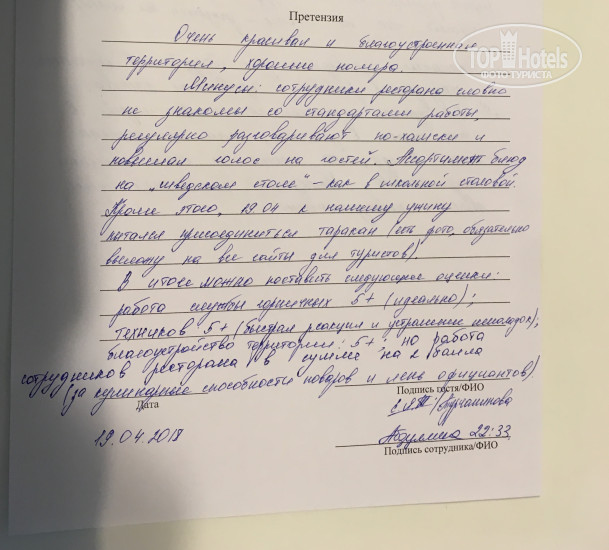 Претензия
Очень красивая и благоустроенная
территория, хорошие номера.
TOP Hotels
ФОТО ТУРИСТА
Минусы: сотрудники ресторана словно
не знакомы со стандартами работы,
регулярно разговаривают по-хамски и
повышая голос на гостей. Ассортимент блюд
на „шведском столе" – как в школьной столовой.
Кроме этого, 19.04 к нашему ужину
пытался присоединиться таракан (есть фото, обязательно
выложу на все сайты для туристов).
В итоге можно поставить следующие оценки:
работа службы горничных 5+ (идеально);
техников 5+ (быстрая реакция и устранение неполадок);
благоустройство территории: 5+; но работа
сотрудников ресторана в сумме на 2 балла
(за кулинарные способности поваров и лень официантов)
Подпись гостя/ФИО
Дата
19.04.2018
22:33
Подпись сотрудника/ФИО